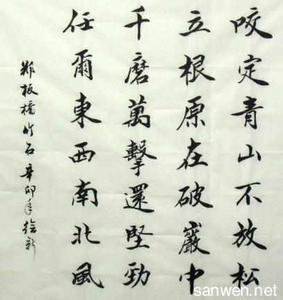 咬定青山不放松
立根原在破巖中
千磨萬擊還堅勁
任爾東西南北風
鄭板橋竹石辛卯年徐新
sanwen.net